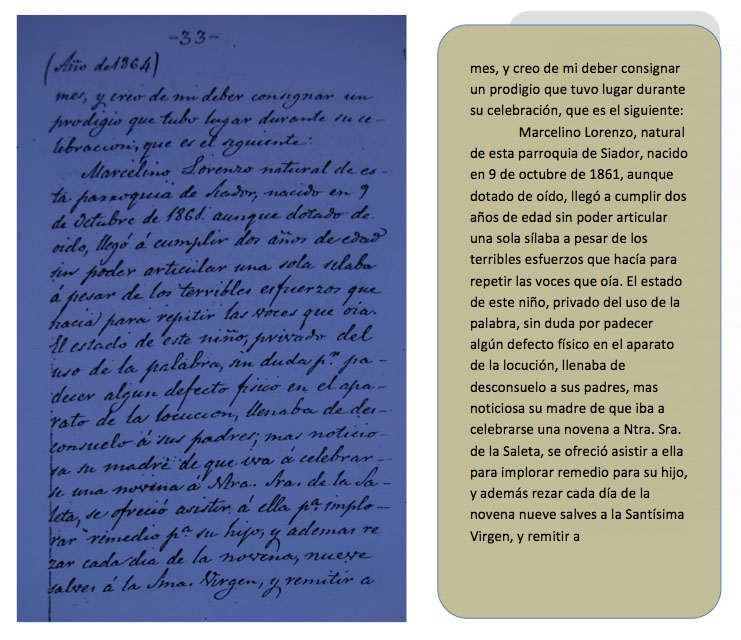 -33-
(Año de 1864)
mes, y creo de mi deber consignar un
prodigio que tubo lugar durante su ce-
lebracion, que es el siguiente:
Marcelino Lorenzo natural de es-
ta parroquia de Siador, nacido en 9
de Octubre de 1861. aunque dotado de
oido, llegó á cumplir dos años de edad
sin poder articular una sola silaba
á pesar de los terribles esfuerzos que
hacia para repitir las voces que oia.
El estado de este niño, privado del
uso de la palabra, sin duda pr. pa-
decer algun defecto fisico en el apa-
rato de la locucion, llenaba de des-
consuelo á sus padres; mas noticio-
sa su madre de que iva á celebrar-
se una novena á Ntra. Sra. de la Sa-
leta, se ofreció asistir á ella pa. implo-
rar remedio pa. su hijo, y ademas re
zar cada dia de la novena, nueve
salves á la Sma. Virgen, y remitir a
mes, y creo de mi deber consignar
un prodigio que tuvo lugar durante
su celebración, que es el siguiente:
Marcelino Lorenzo, natural
de esta parroquia de Siador, nacido
en 9 de octubre de 1861, aunque
dotado de oído, llegó a cumplir dos
años de edad sin poder articular
una sola sílaba a pesar de los
terribles esfuerzos que hacía para
repetir las voces que oía. El estado
de este niño, privado del uso de la
palabra, sin duda por padecer
algún defecto físico en el aparato
de la locución, llenaba de
desconsuelo a sus padres, mas
noticiosa su madre de que iba a
celebrarse una novena a Ntra. Sra.
de la Saleta, se ofreció asistir a ella
para implorar remedio para su hijo,
y además rezar cada día de la
novena nueve salves a la Santísima
Virgen, y remitir a